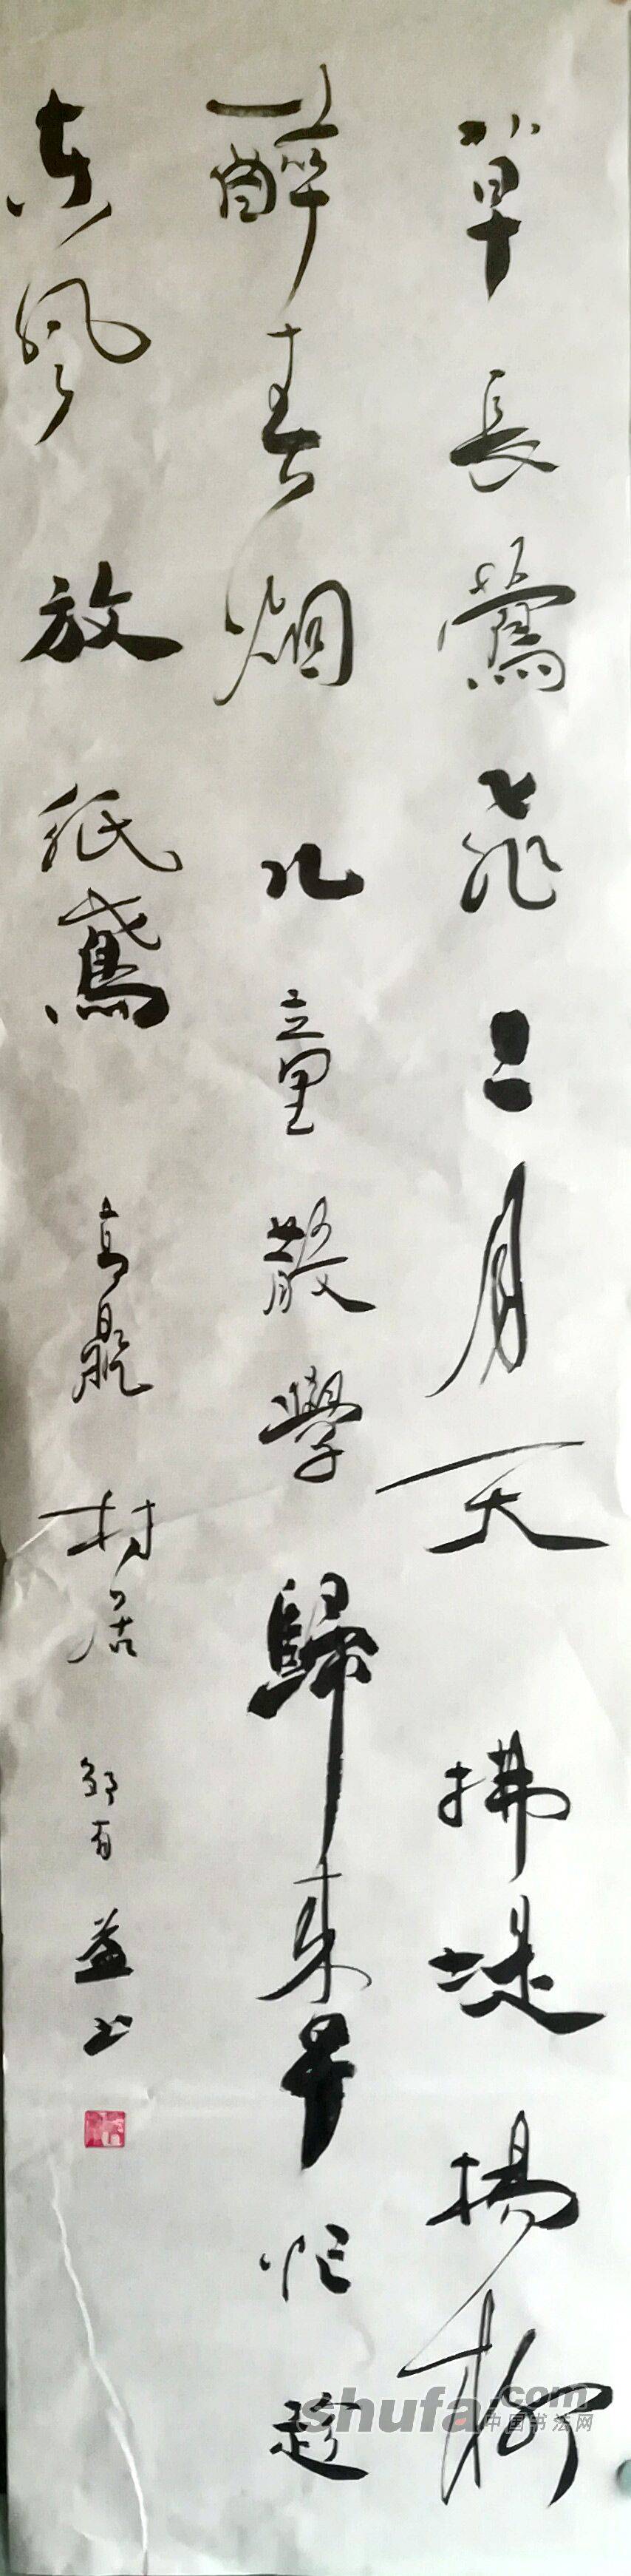 草長鶯飛二月天拂堤楊柳
醉春烟儿童散學歸来早忙趁
東風放紙鳶 高鼎 村居 邹有益书
shufa.com
中国书法网